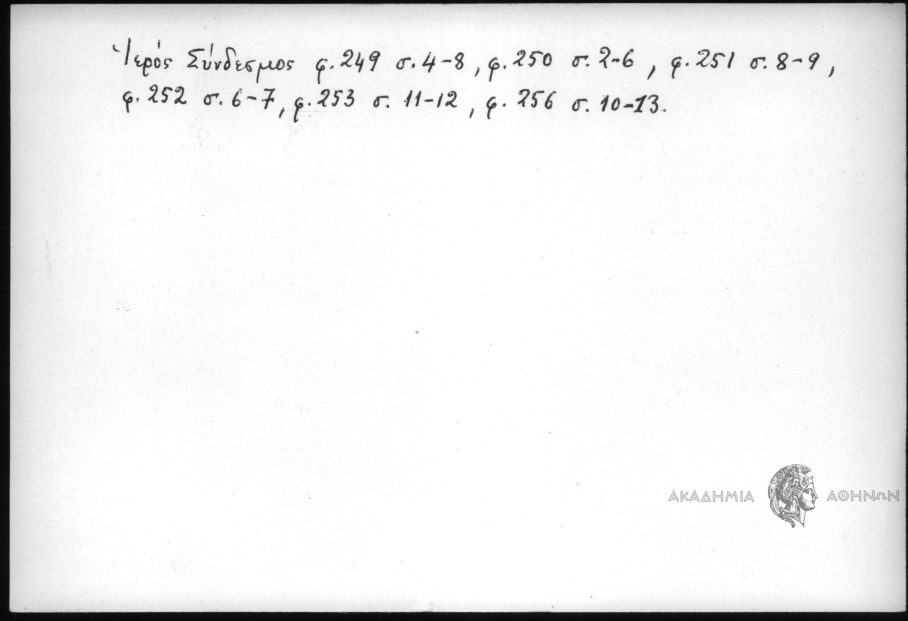 Ἱερός Σύνδεσμος φ. 249 σ. 4-8, φ. 250 σ. 2-6, φ. 251 σ. 8-9,
φ. 252 σ. 6-7, φ. 253 σ. 11-12, φ. 256 σ. 10-13.
ΑΚΑΔΗΜΙΑ ΑΘΗΝΩΝ